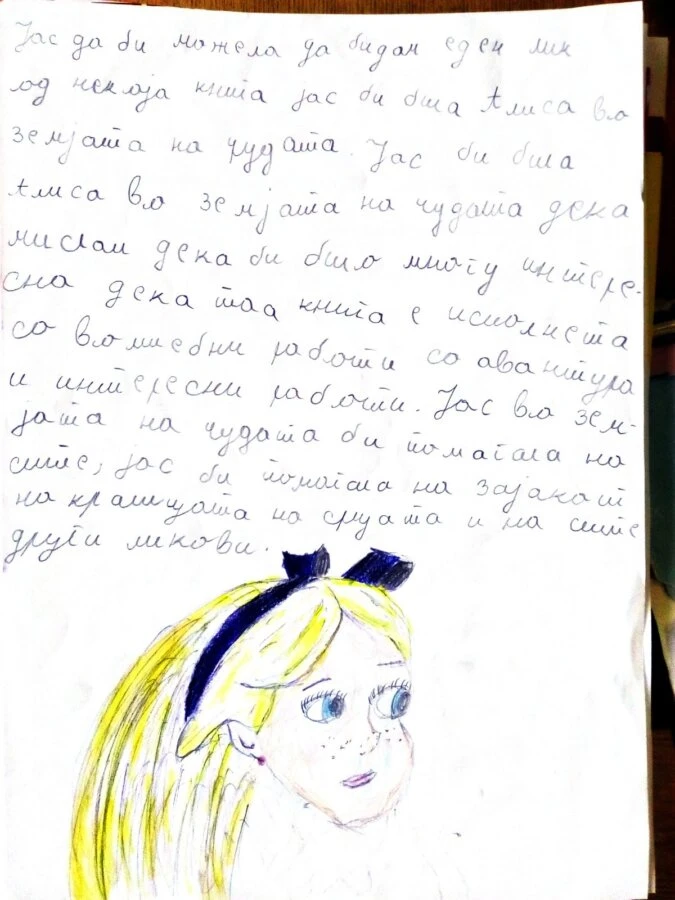 Јас да би можела да бидам еден лик
од некоја книга јас би била Алиса во
земјата на чудата. Јас би била
Алиса во земјата на чудата дека
мислам дека би било многу интере-
сна дека таа книга е исполнета
со волшебни работи со авантура
и интересни работи. Јас во зем-
јата на чудата би помагала на
сите, јас би помагала на зајакот
на кралицата на срцата и на сите
други ликови.